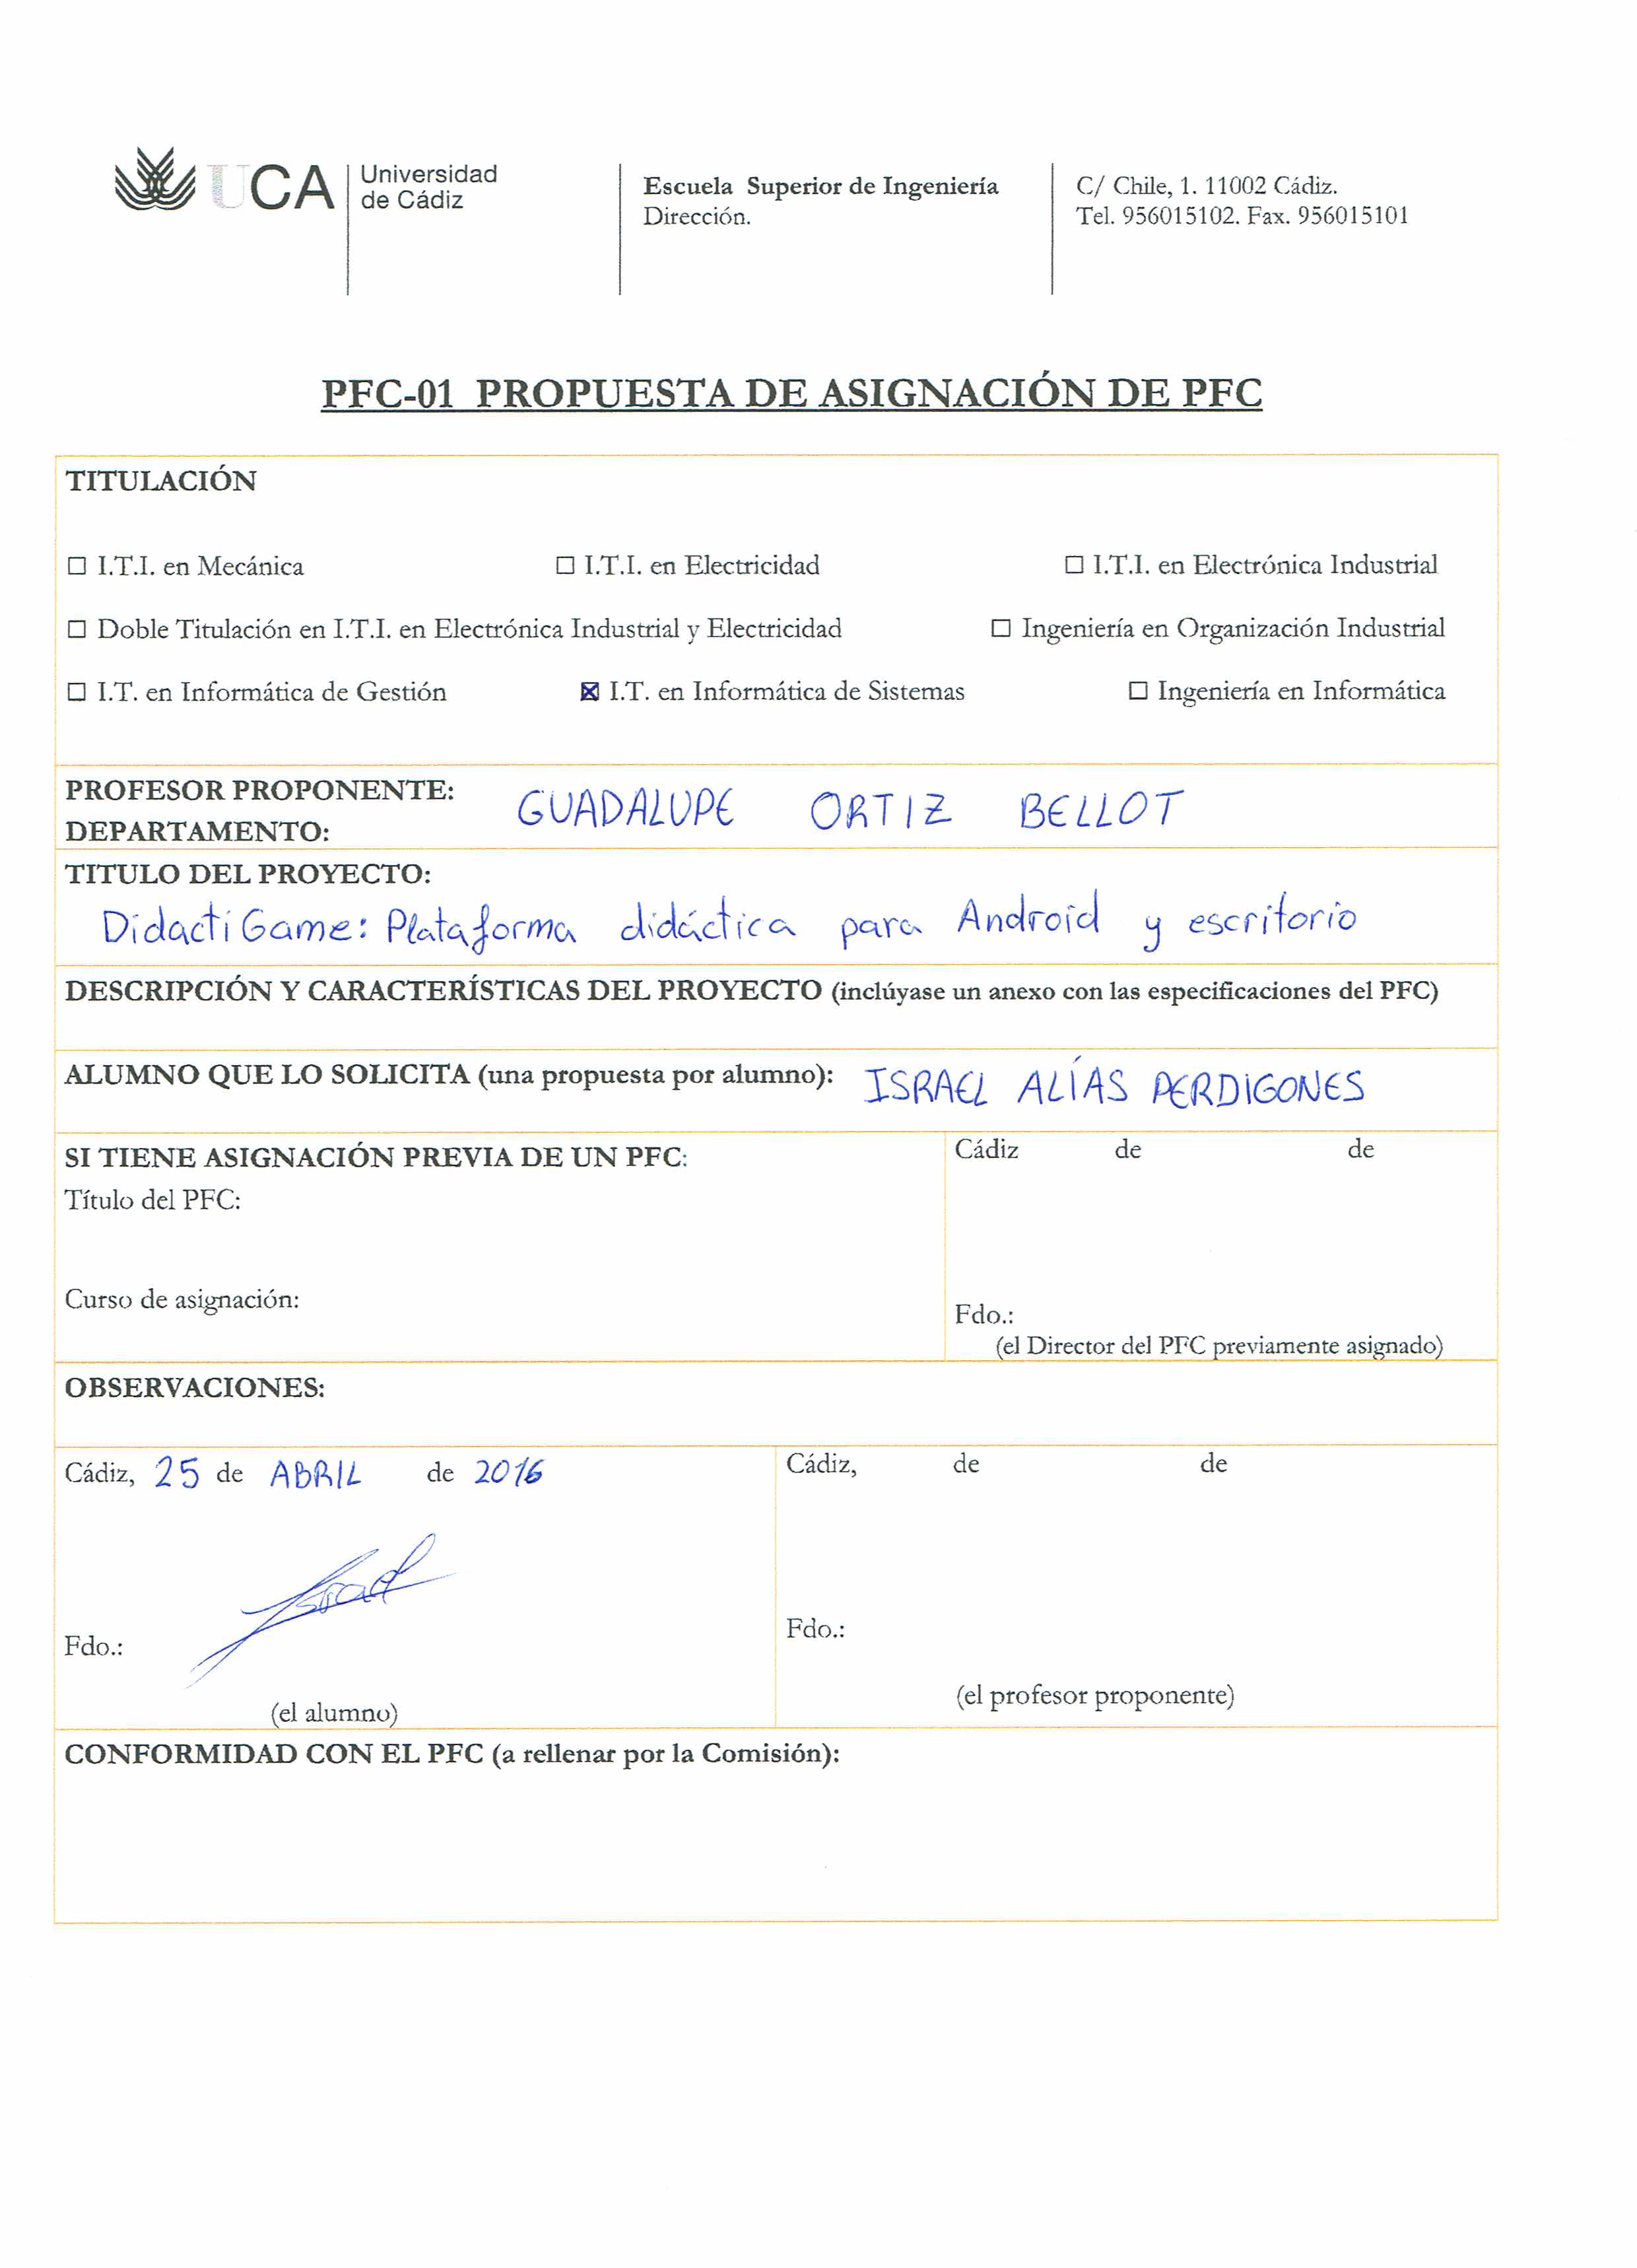 UCA Universidad
de Cádiz
Escuela Superior de Ingeniería
Dirección.
C/ Chile, 1. 11002 Cádiz.
Tel. 956015102. Fax. 956015101
PFC-01 PROPUESTA DE ASIGNACIÓN DE PFC
TITULACIÓN
☐ I.T.I. en Mecánica ☐ I.T.I. en Electricidad ☐ I.T.I. en Electrónica Industrial
☐ Doble Titulación en I.T.I. en Electrónica Industrial y Electricidad ☐ Ingeniería en Organización Industrial
☐ I.T. en Informática de Gestión ☒ I.T. en Informática de Sistemas ☐ Ingeniería en Informática
PROFESOR PROPONENTE: GUADALUPE ORTIZ BELLOT
DEPARTAMENTO:
TITULO DEL PROYECTO:
DidactiGame: Plataforma didáctica para Android y escritorio
DESCRIPCIÓN Y CARACTERÍSTICAS DEL PROYECTO (inclúyase un anexo con las especificaciones del PFC)
ALUMNO QUE LO SOLICITA (una propuesta por alumno): ISRAEL ALÍAS PERDIGONES
SI TIENE ASIGNACIÓN PREVIA DE UN PFC:
Título del PFC:
Curso de asignación:
Cádiz de de
Fdo.:
(el Director del PFC previamente asignado)
OBSERVACIONES:
Cádiz, 25 de ABRIL de 2016
Israel
Fdo.:
(el alumno)
Cádiz, de de
Fdo.:
(el profesor proponente)
CONFORMIDAD CON EL PFC (a rellenar por la Comisión):